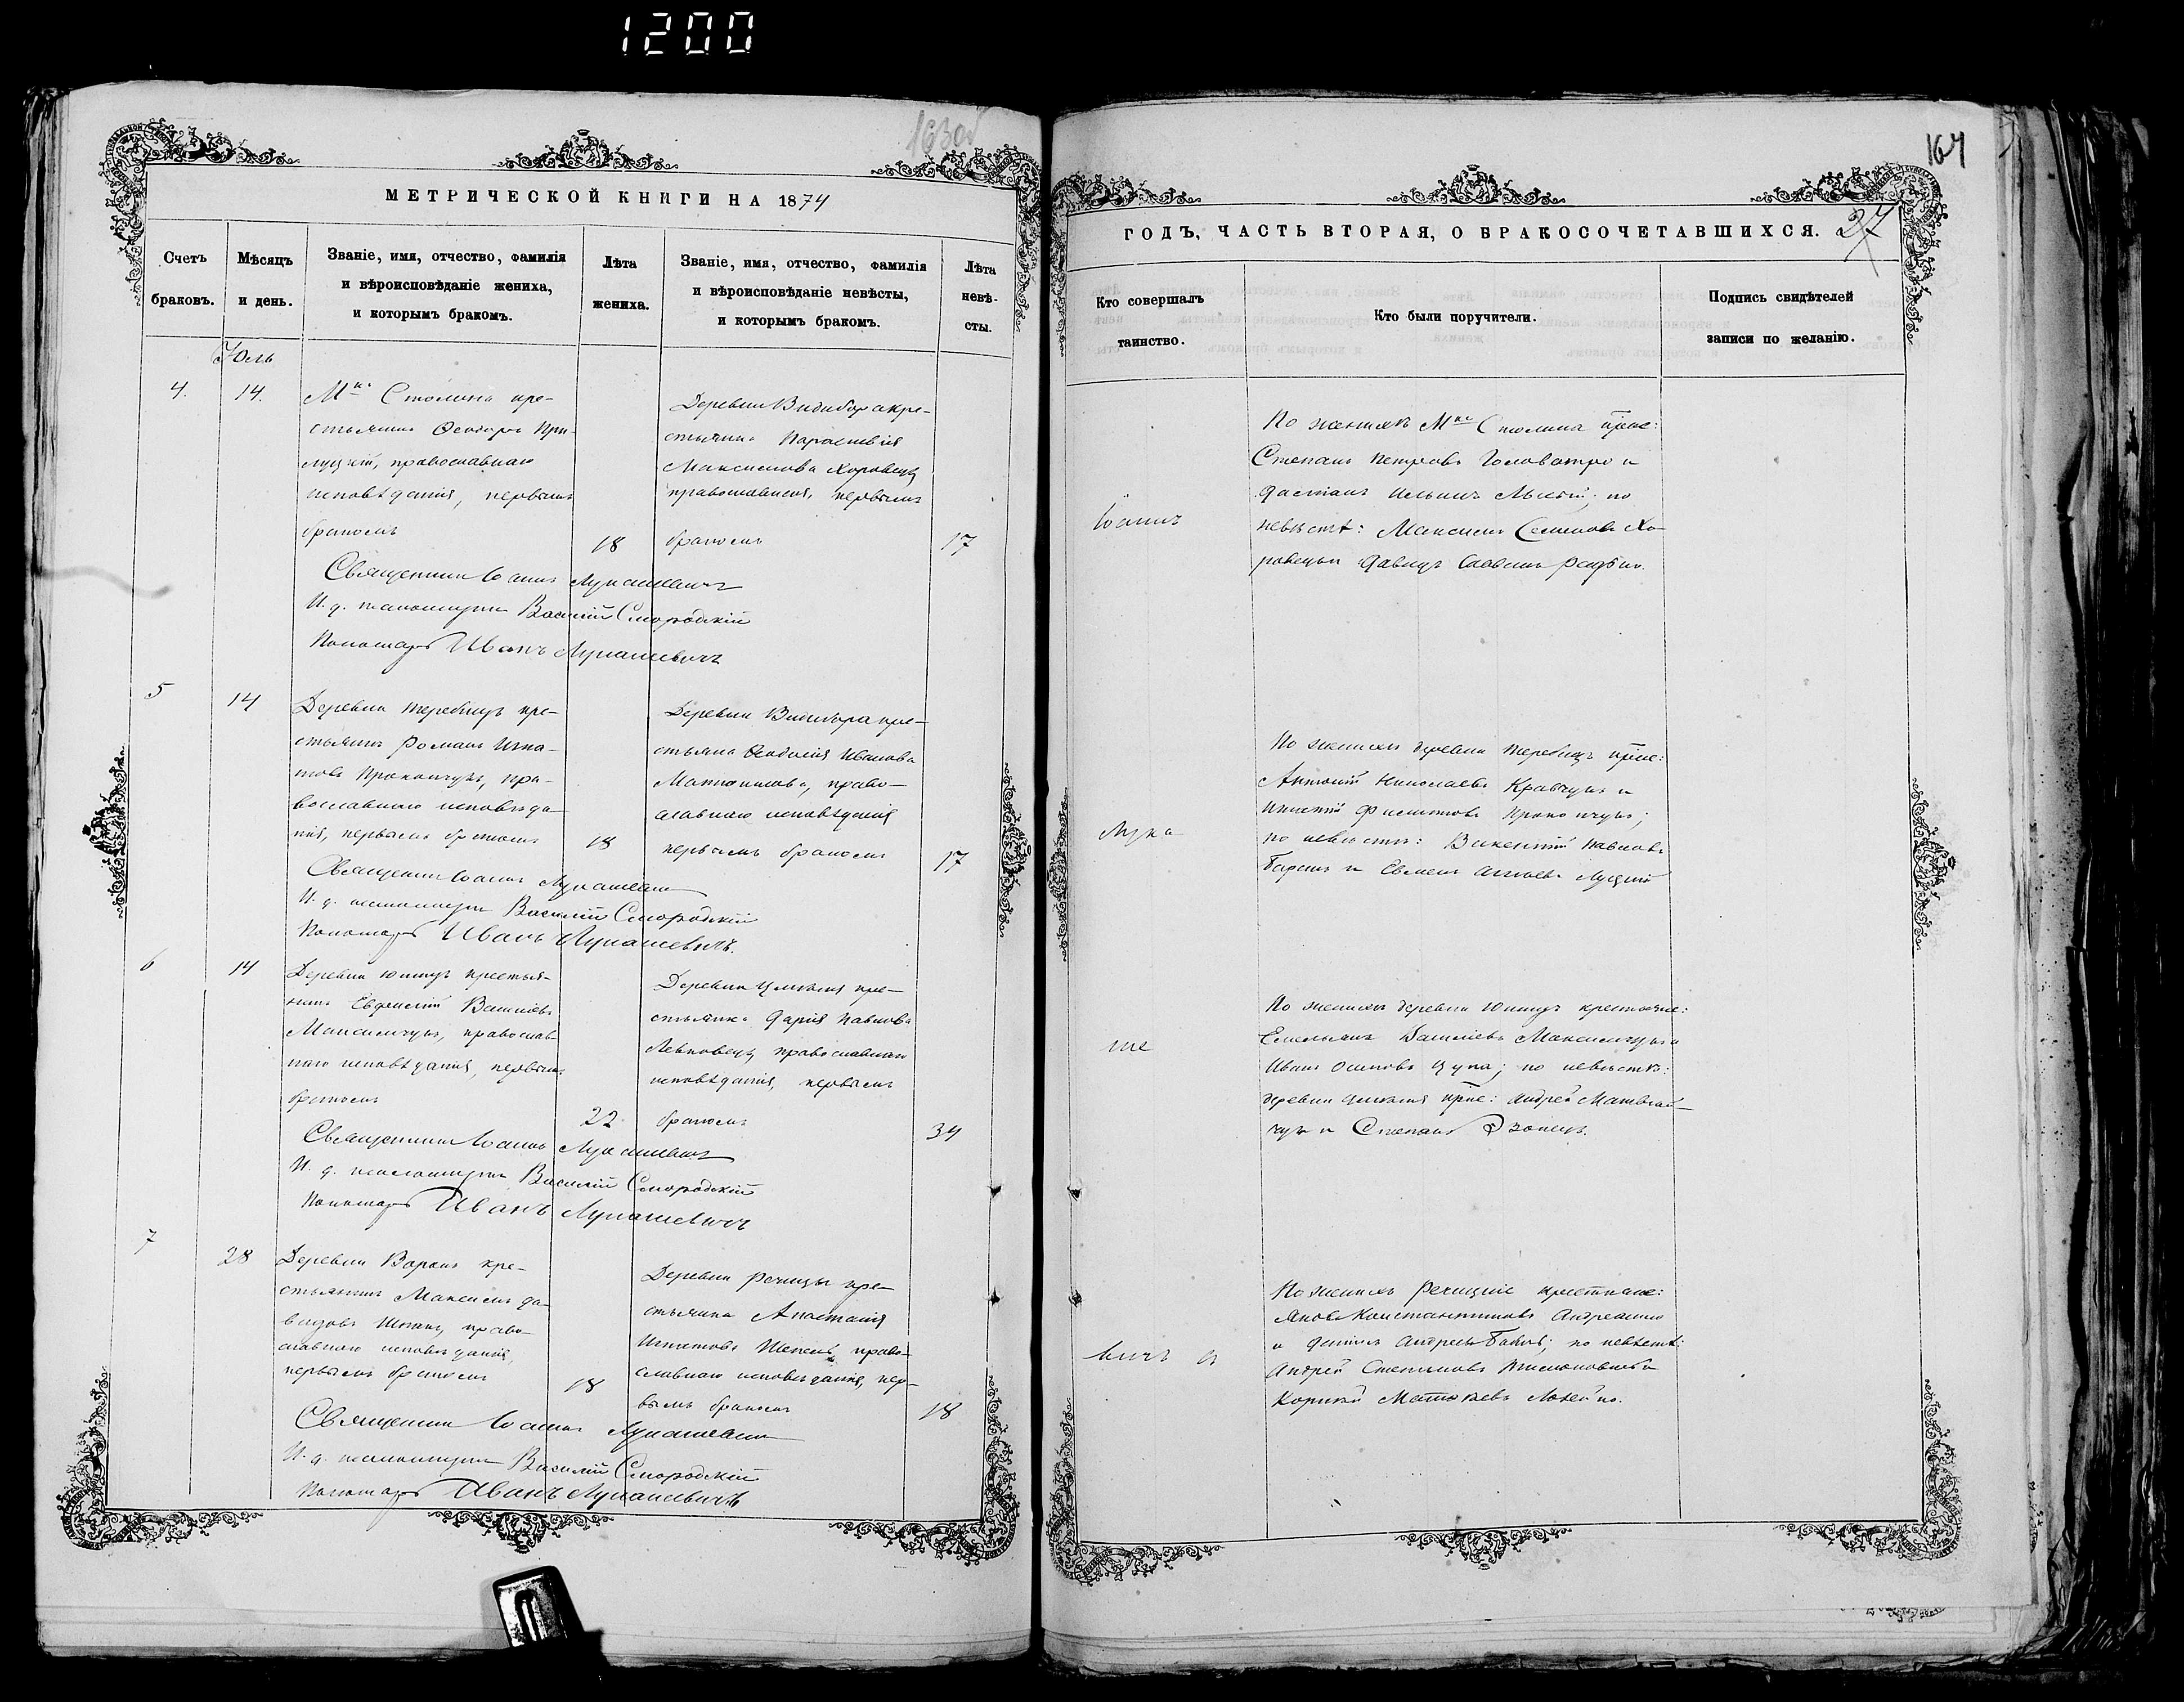 1200
163об
МЕТРИЧЕСКОЙ КНИГИ НА 1874
Счетъ браковъ.
Мѣсяцъ и день.
Званіе, имя, отчество, фамилія
и вѣроисповѣданіе жениха,
и которымъ бракомъ.
Лѣта жениха.
Званіе, имя, отчество, фамилія
и вѣроисповѣданіе невѣсты,
и которымъ бракомъ.
Лѣта невѣ-
сты.
Юль
4.
14.
Мка Столина кре-
стьянинъ Ѳеодоръ
православнаго
исповѣданія, первымъ
бракомъ
18
Деревни Видибора кре-
стьянка Параскевія
Максимова Хоровецъ
православнаго, первымъ
бракомъ
17
Священникъ Іоаннъ Лукашевичъ
И. д. псаломщика Василій Смородскій
Пономарь Иванъ Лукашевичъ
5
14
Деревни Теребицъ кре-
стьянинъ Романъ Игна-
товъ Прокопчукъ, пра-
вославнаго исповѣда-
нія, первымъ бракомъ
18
Деревни Видибора кре-
стьянка Ѳеодосія Иванова
право-
славнаго исповѣданія
первымъ бракомъ
17
Священникъ Іоаннъ Лукашевичъ
И. д. псаломщика Василій Смородскій
Пономарь Иванъ Лукашевичъ.
6
14
Деревни Юнищъ крестья-
нинъ Васильевъ
Максимчукъ, православ-
наго исповѣданія, первымъ
бракомъ
22
Деревни кре-
стьянка Дарія Павлова
Левковецъ православнаго
исповѣданія, первымъ
бракомъ
34
Священникъ Іоаннъ Лукашевичъ
И. д. псаломщика Василій Смородскій
Пономарь Иванъ Лукашевичъ
7
28
Деревни Воронъ кре-
стьянинъ Максимъ Да-
видовъ право-
славнаго исповѣданія,
первымъ бракомъ
18
Деревни Речицы кре-
стьянка Анастасія
Игнатова право-
славнаго исповѣданія, пер-
вымъ бракомъ
18
Священникъ Іоаннъ Лукашевичъ
И. д. псаломщика Василій Смородскій
Пономарь Иванъ Лукашевичъ
164
27
ГОДЪ, ЧАСТЬ ВТОРАЯ, О БРАКОСОЧЕТАВШИХСЯ.
Кто совершалъ
таинство.
Кто были поручители.
Подпись свидѣтелей
записи по желанію.
Іоаннъ
По женихѣ Мка Столина крне:
Степанъ Петровъ и
Ильинъ по
невѣстѣ: Максимъ Семеновъ Хо-
ровецъ и Давидъ
Лука
По женихѣ деревни Теребицъ крне:
Антоній Николаевъ Кравчукъ и
Игнатій Филиповъ Прокопчукъ;
по невѣстѣ: Викентій Павловъ
и
ше
По женихѣ деревни Юнищъ крестьяне:
Емельянъ Васильевъ Максимчукъ и
Иванъ Осиповъ Цупа; по невѣстѣ:
деревни крне: Андрей Матвѣй-
чукъ и Степанъ
вичъ
По женихѣ Речицкіе крестьяне:
Яковъ Константиновъ
и Андреевъ по невѣстѣ:
Андрей Степановъ и